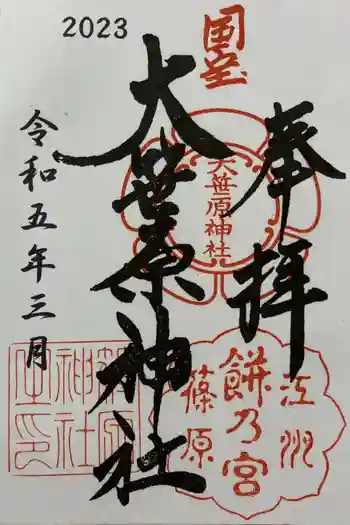 2023
国宝
奉拝
大笹原神社
令和五年三月
大笹原神社
江州
餅乃宮
篠原